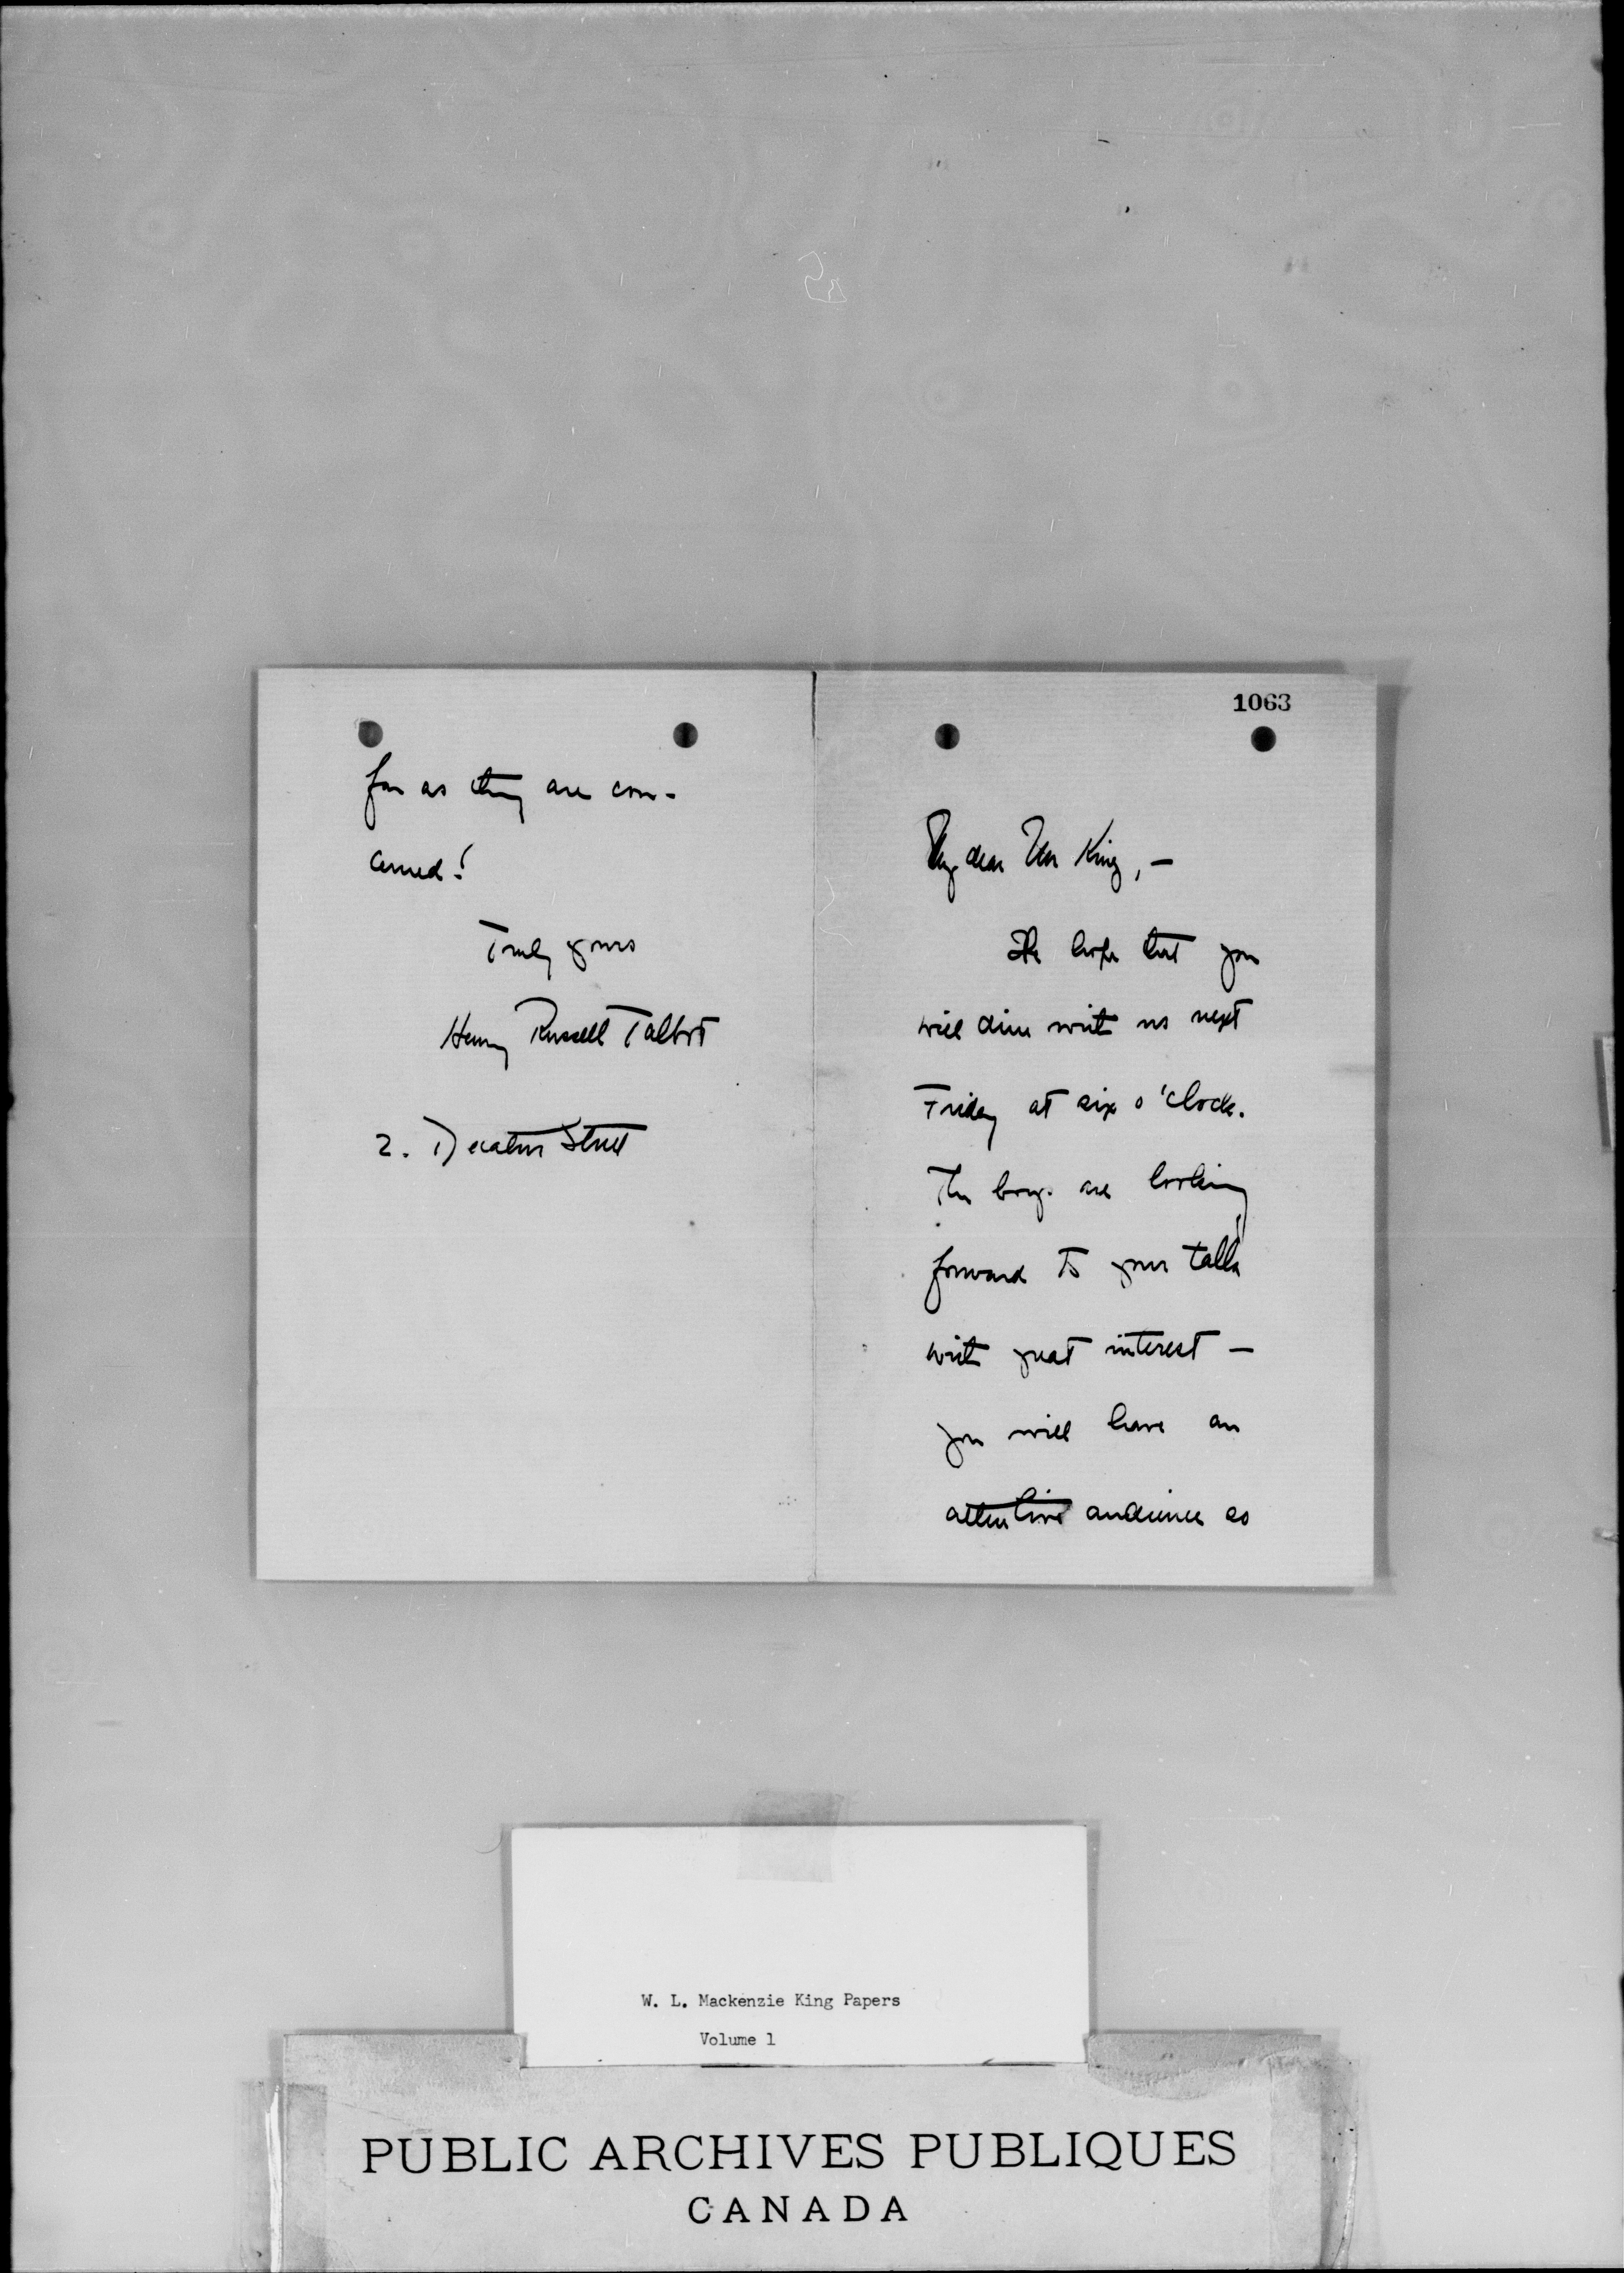 1063
My dear Mr King, —
We hope that you
will dine with us next
Friday at six o'clock.
The boys are looking
forward to your talk
with great interest —
you will have an
attentive audience as
far as they are con-
cerned!
Truly yours
Henry Russell Talbot
2. Decatur Street
W. L. Mackenzie King Papers
Volume 1
PUBLIC ARCHIVES PUBLIQUES
CANADA